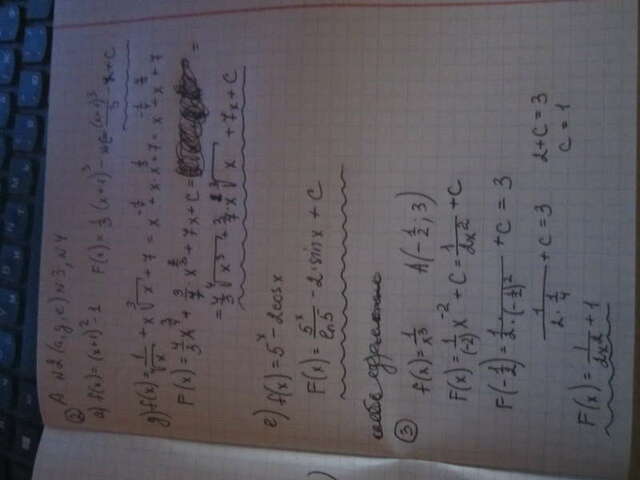 A №2 (а, д, е) №3, №4
② а) f(x) = (x+1)² - 1 F(x) = 1/3 (x+1)³ - x + C = (x+1)³/3 - x + C
д) f(x) = 1/⁴√x + x ³√x + 7 = x^(-1/4) + x · x^(1/3) + 7 = x^(-1/4) + x^(4/3) + 7
F(x) = 4/3 x^(3/4) + 3/7 · x^(7/3) + 7x + C = =
= 4/3 ⁴√x³ + 3/7 · x² ³√x + 7x + C
е) f(x) = 5^x - 2cosx
F(x) = 5^x/ln5 - 2·sinx + C
③ f(x) = 1/x³ A(-1/2; 3)
F(x) = 1/(-2) x^(-2) + C = 1/2x² + C
F(-1/2) = 1/2·(-1/2)² + C = 3
1/2·1/4 + C = 3 2 + C = 3
C = 1
F(x) = 1/2x² + 1